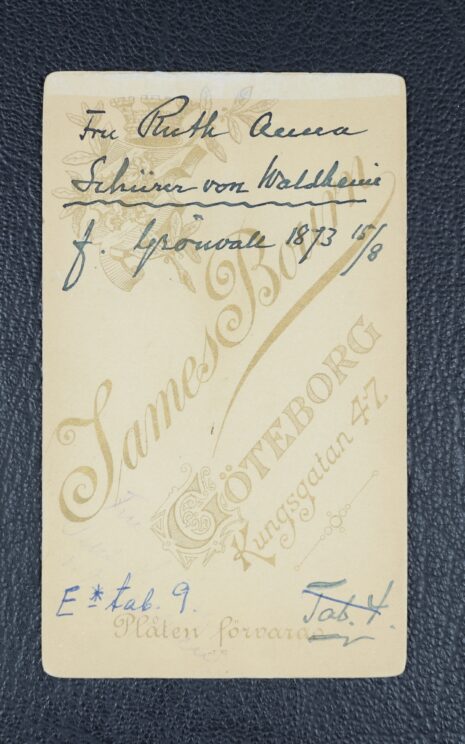 Fru Ruth Anna
Schürer von Waldheim
f. Grönvall 1873 15/8
James Bourn
GÖTEBORG
Kungsgatan 47.
E* tab. 9.
Tab. 4.
Plåten förvaras